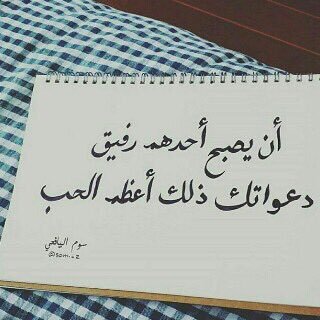 أن يصبح أحدهم رفيق
دعواتك ذلك أعظم الحب
سوم اليافعي
@som.az